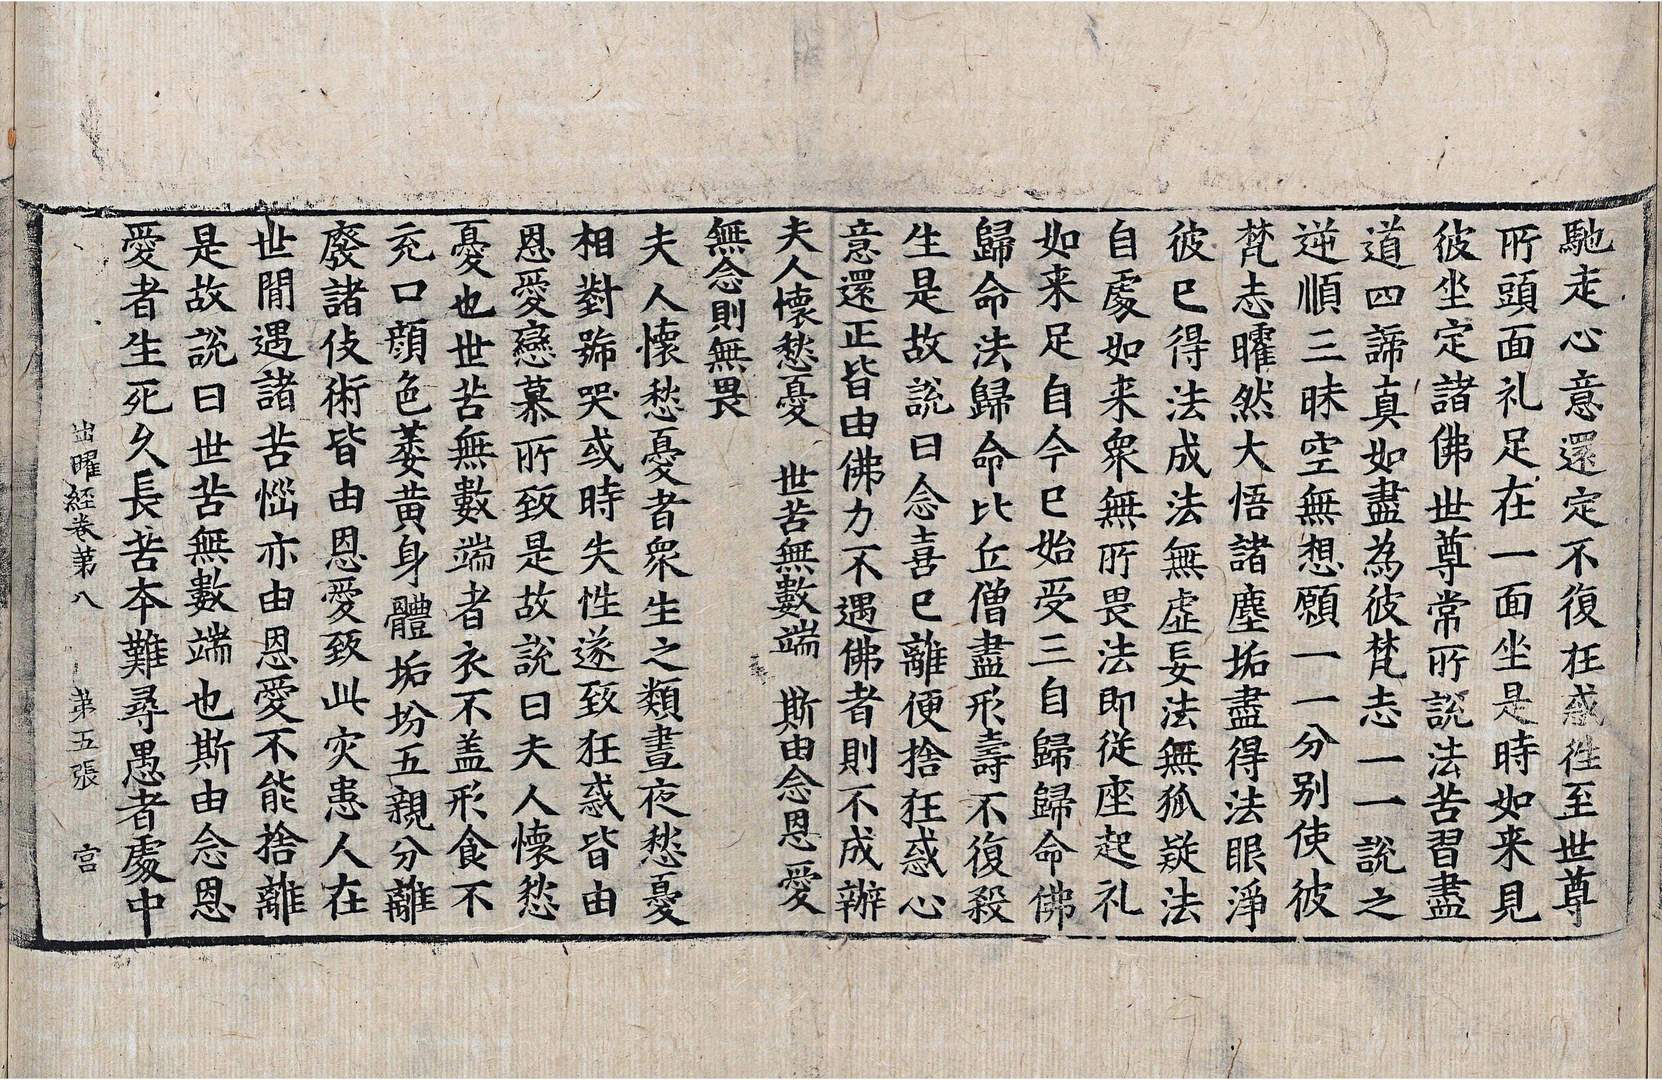 馳走心意還定不復狂惑徃至世尊
所頭面礼足在一面坐是時如来見
彼坐定諸佛世尊常所說法苦習盡
道四諦真如盡為彼梵志一一說之
逆順三昧空無想願一一分别使彼
梵志曜然大悟諸塵垢盡得法眼淨
彼已得法成法無虛妄法無狐疑法
自處如来衆無所畏法即從座起礼
如来足自今已始受三自歸歸命佛
歸命法歸命比丘僧盡形壽不復殺
生是故說曰念喜已離便捨狂惑心
意還正皆由佛力不遇佛者則不成辦
夫人懷愁憂　世苦無數端　斯由念恩愛
無念則無畏
夫人懷愁憂者衆生之類晝夜愁憂
相對號哭或時失性遂致狂惑皆由
恩愛戀慕所致是故說曰夫人懷愁
憂也世苦無數端者衣不盖形食不
充口顔色萎黄身體垢坋五親分離
廢諸伎術皆由恩愛致此灾患人在
世間遇諸苦惱亦由恩愛不能捨離
是故說曰世苦無數端也斯由念恩
愛者生死久長苦本難尋愚者處中
出曜經卷苐八　苐五張　宮